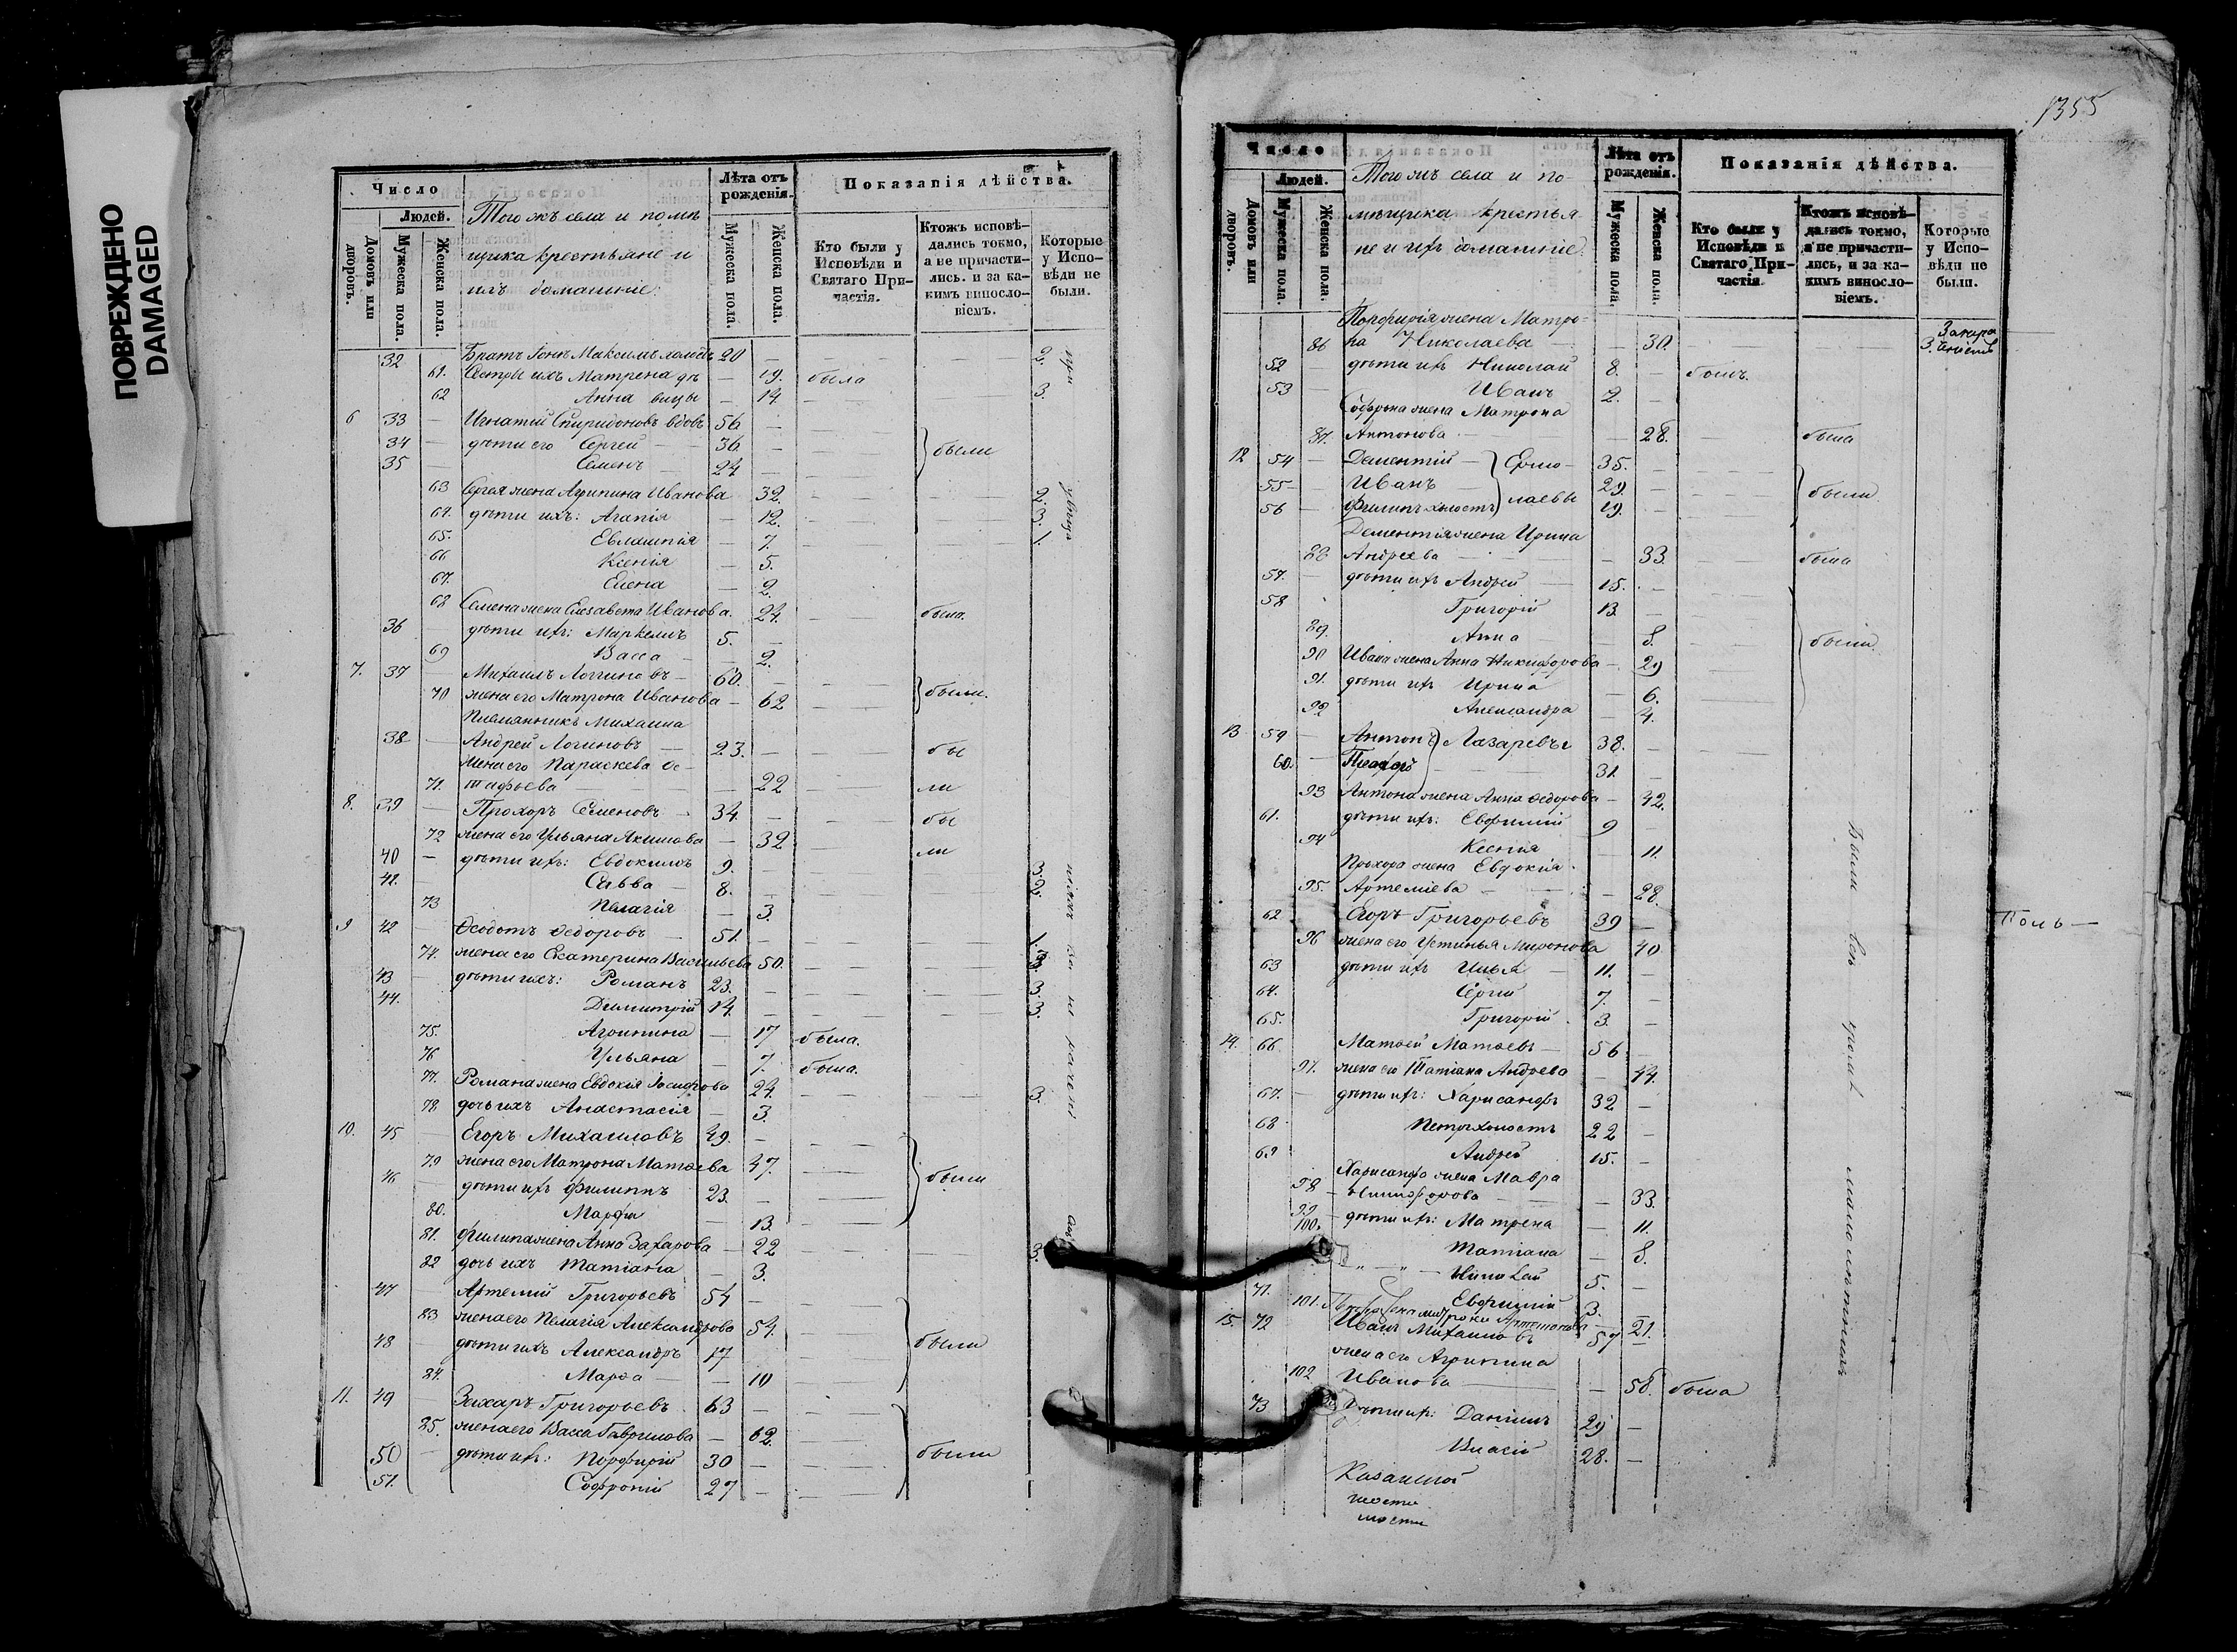 ПОВРЕЖДЕНО
DAMAGED
Число
Людей.
Домовъ или дворовъ.
Мужеска пола.
Женска пола.
Тогожъ села и помѣ
щика крестьяне и
ихъ домашніе:
Лѣта отъ рожденія.
Мужеска пола.
Женска пола.
Показанія дѣйства.
Кто были у Исповѣди и Святаго Причастія.
Ктожъ исповѣдались токмо, а не причастились. и за какимъ винословіемъ.
Которые у Исповѣди не были.
32 Братъ Максимъ 20 — 2.
61. Сестры ихъ Матрена дѣ — 19. была
62 Анна вицы — 14 3.
6 33 — Игнатій Спиридоновъ вдовъ 56 —
34 — дѣти его Сергей 36. — были
35 — Семенъ 24 —
63 Сергея жена Агрипина Иванова 32. 2.
64. дѣти ихъ: Агапія — 12. 3.
65. Евлампія — 7. 1.
66 Ксенія — 5.
67. Елена — 2.
68 Семена жена Елизавета Иванова. 24. была.
36 — дѣти ихъ: Маркелъ 5. —
69 Васса — 2.
7. 37 — Михаилъ Логгиновъ — 60. —
70 жена его Матрона Иванова — 62 были.
Племянникъ Михаила
38 — Андрей Логиновъ — 23. — бы
жена его Параскева Ос-
71. тафьева — 22 ли
8. 39 — Прохоръ Семеновъ — 34. — бы
72 жена его Ульяна Акимова — 32 ли
40 — дѣти ихъ: Евдокимъ 9. — 3.
41. Савва — 8. — 2.
73 Пелагія — 3.
9 42 — Ѳеодотъ Ѳедоровъ — 51. — 1.
74. жена его Екатерина Васильева 50. 3.
43 дѣти ихъ: Романъ 23. — 3.
44. Димитрій 14. — 3.
75. Агрипина — 17 была.
76 Ульяна — 7. была.
77. Романа жена Евдокія Іосифова 24. 3.
78 дочь ихъ Анастасія — 3.
10. 45 — Егоръ Михаиловъ 49. —
79 жена его Матрона Матѳева 47. были
46 — дѣти ихъ Филиппъ 23. —
80. Марфа — 13.
81. Филипа жена Анна Захарова — 22 3.
82 дочь ихъ Татіана — 3.
47 — Артемій Григорьевъ 54 —
83 жена его Пелагія Александрова 54. были
48 — дѣти ихъ Александръ 17
84. Марѳа — 10
11. 49 — Захаръ Григорьевъ 63 —
85. жена его Васса Гаврилова — 62.
50 — дѣти ихъ: Порфирій 30 — были
51. Софроній 27 —
1355
Число
Людей.
Домовъ или дворовъ.
Мужеска пола.
Женска пола.
Тогожъ села и по-
мѣщика крестья-
не и ихъ домашніе.
Лѣта отъ рожденія.
Мужеска пола.
Женска пола.
Показанія дѣйства.
Кто были у Исповѣди и Святаго Причастія.
Ктожъ исповѣдались токмо, а не причастились, и за какимъ винословіемъ.
Которые у Исповѣди не были.
Порфирія жена Матро-
86 на Николаева — 30. 3.
52 — дѣти ихъ Николай 8. — былъ.
53 — Иванъ 2. —
Софрона жена Матрона
87. Антонова — 28. была
12 54 — Дементій — Ермо- 35. —
55 — Иванъ 29. — были
56 — Филипъ холостъ лаевы 19. —
Дементія жена Ирина
88 Андреева — 33. была
57. — дѣти ихъ Андрей 15. —
58 Григорій 13. —
89. Анна — 8. были
90 Ивана жена Анна Никифорова — 29
91. дѣти ихъ Ирина — 6.
92 Александра — 4.
13 59 — Антонъ Лазаревы 38. —
60. — Прохоръ 31 —
93 Антона жена Анна Ѳедорова — 42.
61. дѣти ихъ: Евфимій 9 —
94 Ксенія — 11.
Прохора жена Евдокія
95. Артеміева — 28.
62 Егоръ Григорьевъ 39 —
96 жена его Устинья Миронова 40
63 дѣти ихъ Илья — 11. —
64. Сергій 7. —
65. Григорій 3. —
14. 66 Матѳей Матѳевъ — 56 —
97. жена его Татіана Андреева — 44.
67. — дѣти ихъ: Харисанфъ 32 —
68 Петръ холостъ 22 —
69 Андрей 15. —
Харисанфа жена Мавра
98 Никифорова — 33.
99 дѣти ихъ: Матрена — 11.
100. Татіана — 8.
Николай 5. —
71. Евфимій 3. —
101. — 21.
15. 72 Иванъ Михаиловъ 57 —
жена его Агрипина
102 Иванова — 58. была
73 дѣти ихъ: Даніилъ 29 —
Власій 28. —
Были всѣ кромѣ малолѣтнихъ